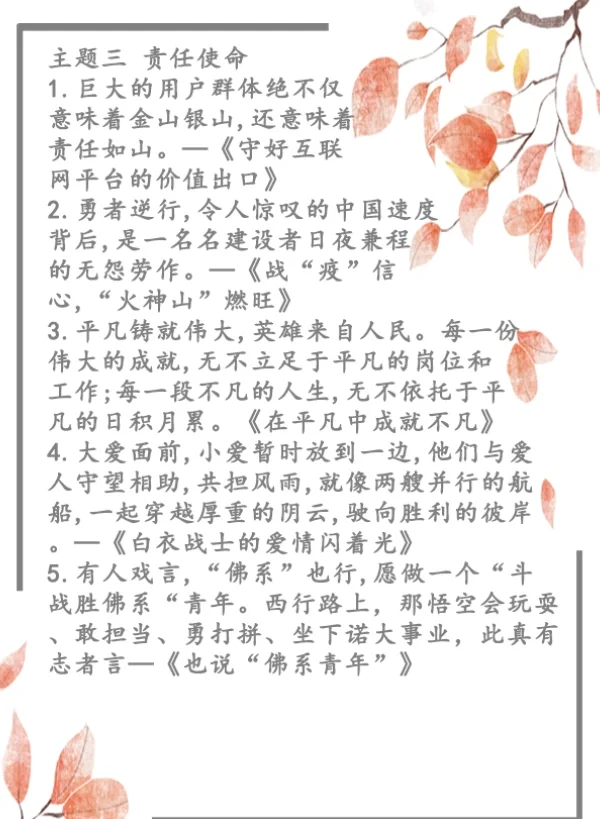 主题三 责任使命
1.巨大的用户群体绝不仅
意味着金山银山,还意味着
责任如山。—《守好互联
网平台的价值出口》
2.勇者逆行,令人惊叹的中国速度
背后,是一名名建设者日夜兼程
的无怨劳作。—《战“疫”信
心,“火神山”燃旺》
3.平凡铸就伟大,英雄来自人民。每一份
伟大的成就,无不立足于平凡的岗位和
工作;每一段不凡的人生,无不依托于平
凡的日积月累。《在平凡中成就不凡》
4.大爱面前,小爱暂时放到一边,他们与爱
人守望相助,共担风雨,就像两艘并行的航
船,一起穿越厚重的阴云,驶向胜利的彼岸
。—《白衣战士的爱情闪着光》
5.有人戏言,“佛系”也行,愿做一个“斗
战胜佛系“青年。西行路上，那悟空会玩耍
、敢担当、勇打拼、坐下诺大事业，此真有
志者言—《也说“佛系青年”》